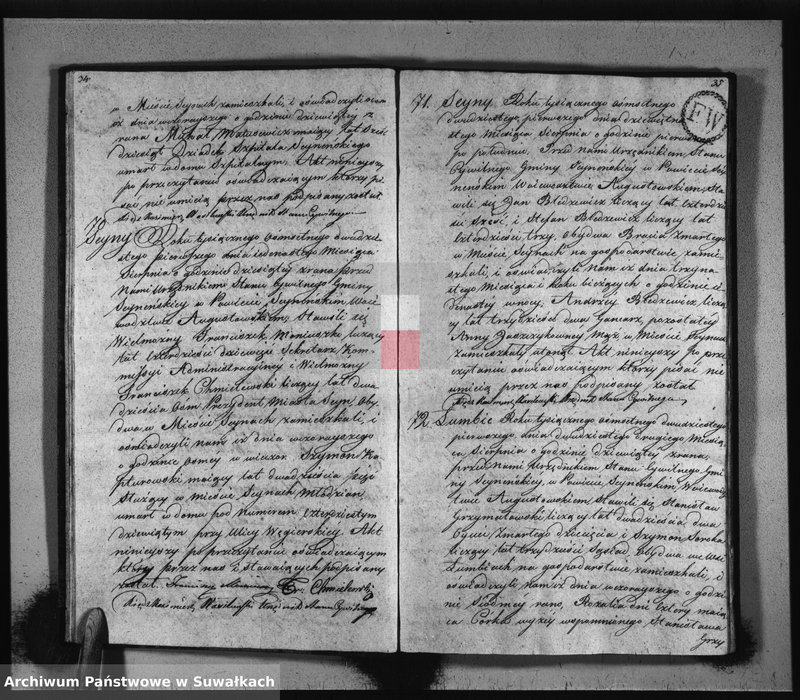 34
w Mieście Seynach zamieszkali, i oświadczyli nam
iż dnia wczorayszego o godzinie dziewiątey z
rana Michał Matusewicz maiący lat sześć
dziesiąt Dziadek Szpitala Seynenskiego
umarł w domu Szpitalnym. Akt ninieyszy
po przeczytaniu oświadczaiącym którzy pi
sać nie umieią przez nas podpisany został
Seyny Roku tysiącznego osmsetnego dwudzie
stego pierwszego dnia Miesiąca
Sierpnia o godzinie dziesiątey zrana przed
Nami Urzędnikiem Stanu Cywilnego Gminy
Seynenskiey w Powiecie Seynenskim Woie
wodztwie Augustowskiem, Stawili się
Wielmożny Franciszek Moniuszko liczący
lat czterdzieści dziewięć Sekretarz Kom
missyi Administracyiney i Wielmożny
Franciszek Chmielewski liczący lat dwa
dzieścia ośm Prezydent Miasta Seyn, oby
dwa w Mieście Seynach zamieszkali, i
oświadczyli nam iż dnia wczorayszego
o godzinie osmey w wieczor. Szymon Ka
pturowski maiący lat dwadzieścia
Służący w mieście Seynach Młodzian
umarł w domu pod Numerem czterdziestym
dziewiątym przy Ulicy Węgierskiey. Akt
ninieyszy po przeczytaniu oświadczaiącym
który przez nas i stawaiących podpisany
został.
35
FW
71. Seyny Roku tysiącznego ośmsetnego
dwudziestego pierwszego dnia dziewiętna
stego Miesiąca Sierpnia o godzinie pierwszey
po południu. Przed Nami Urzędnikiem Stanu
Cywilnego Gminy Seynenskiey w Powiecie Sey
nenskim Woiewodztwie Augustowskiem Sta
wili się Jan Bledzewicz liczący lat czterdzie
ści sześć, i Stefan Bledzewicz liczący lat
czterdzieści trzy, obydwa Bracia zmarłego
w Mieście Seynach na gospodarstwie zamie
szkali, i oświadczyli Nam iż dnia trzyna
stego Miesiąca i Roku bieżących o godzinie ie
denastey w nocy, Andrzey Bledzewicz liczą
cy lat trzydzieści dwa Garncarz, pozostałey
Anny Mąż, w Mieście Seynach
zamieszkały utonął. Akt ninieyszy po prze
czytaniu oświadczaiącym którzy pisać nie
umieią przez nas podpisany został
72. Łumbie Roku tysiącznego osmsetnego dwudziestego
pierwszego, dnia dwudziestego drugiego Miesią
ca Sierpnia o godzinie dziewiątey zrana,
przed Nami Urzędnikiem Stanu Cywilnego Gmi
ny Seynenskiey, w Powiecie Seynenskim, Woiewodz
twie Augustowskiem Stawili się Stanisław
Grzymałowski liczący lat dwadzieścia dwa
Oyciec zmarłego dziecięcia i Szymon Soroka
liczący lat trzydzieści Sąsiad, obydwa we Wsi
Łumbiach na gospodarstwie zamieszkali, i
oświadczyli Nam iż dnia wczorayszego o godzi
nie Siódmey rano, Rozalia dni cztery maią
ca Corka wyżey wspomnianego Stanisława
Grzy
Archiwum Państwowe w Suwałkach